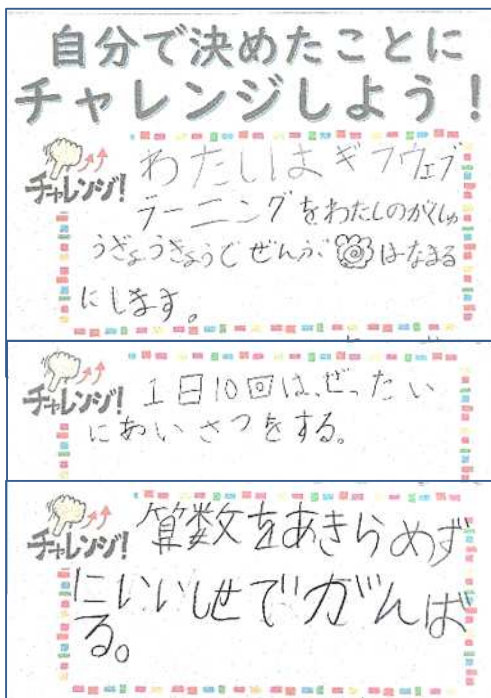 自分で決めたことに
チャレンジしよう！
チャレンジ!
わたしはギフウェブ
ラーニングをわたしのがくしゅ
うぎょうきょうでぜんぶはなまる
にします。
チャレンジ!
1日10回は、ぜったい
にあいさつをする。
チャレンジ!
算数をあきらめず
にいいしせでがんば
る。